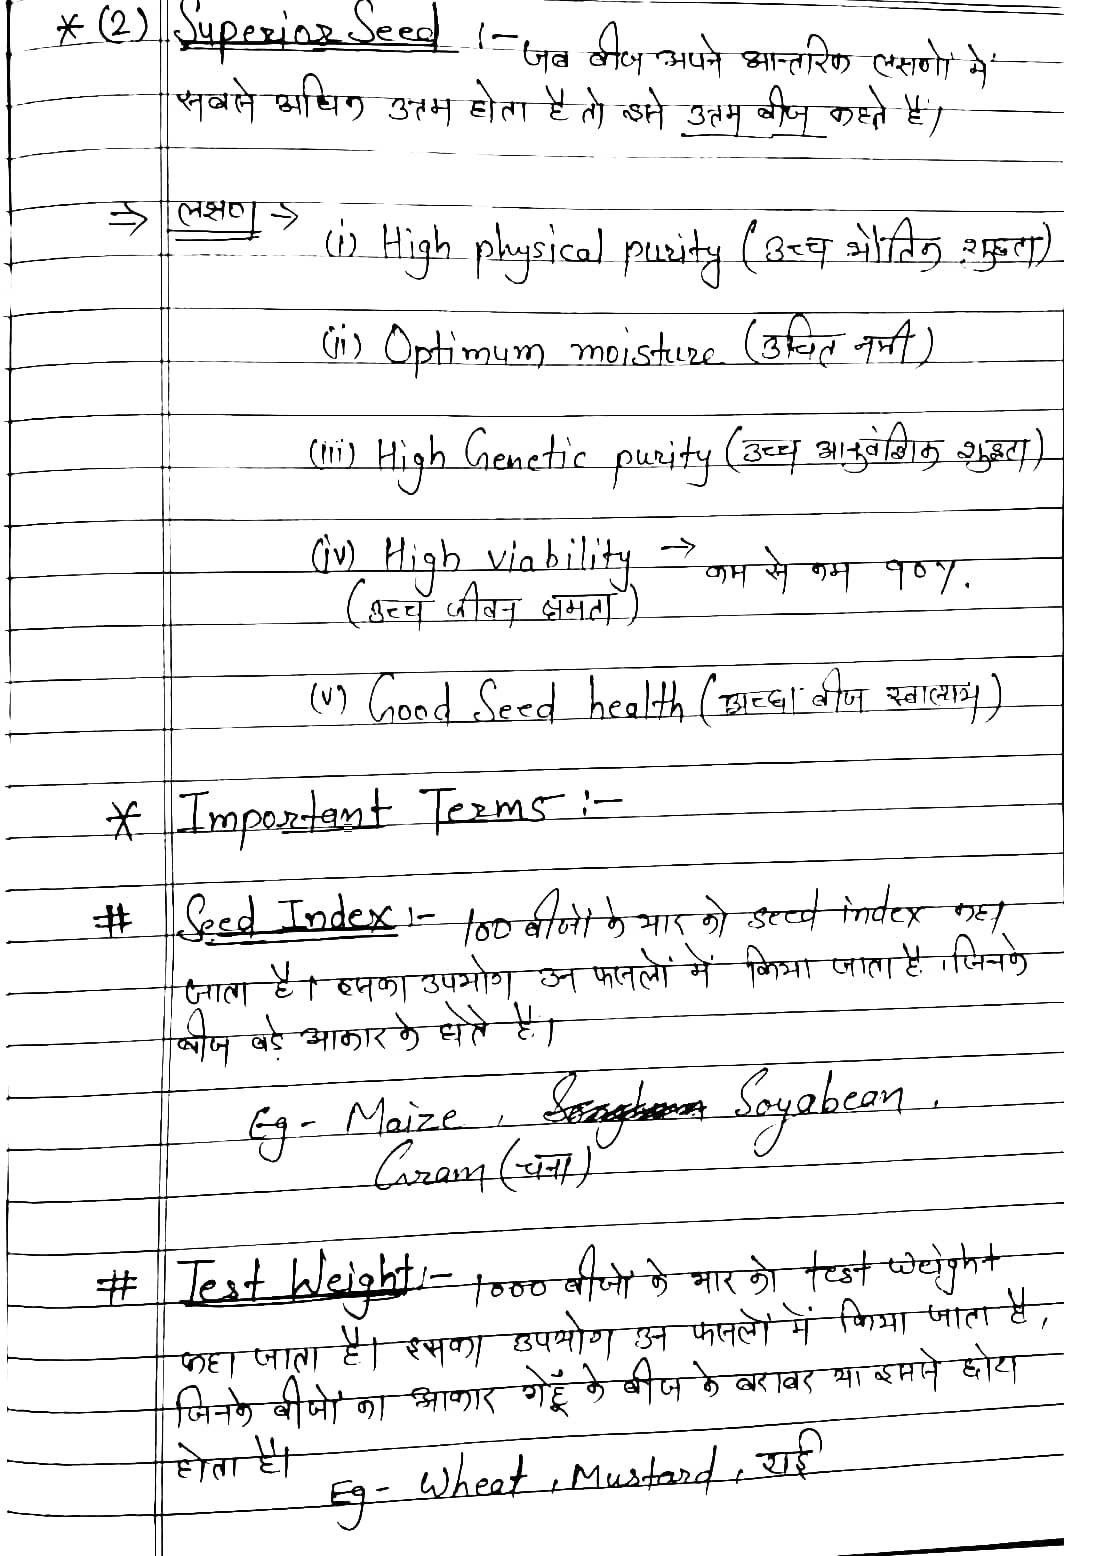 * (2) Superior Seed :- जब बीज अपने आन्तरिक लक्षणों में
सबसे अधिक उत्तम होता है तो इसे उत्तम बीज कहते है।
⇒ लक्षण → (i) High physical purity (उच्च भौतिक शुद्धता)
(ii) Optimum moisture (उचित नमी)
(iii) High Genetic purity (उच्च आनुवंशिक शुद्धता)
(iv) High viability → कम से कम 90%.
(उच्च जीवन क्षमता)
(v) Good Seed health (अच्छा बीज स्वास्थ्य)
* Important Terms :-
# Seed Index :- 100 बीजों के भार को seed index कहा
जाता है। इसका उपयोग उन फसलों में किया जाता है, जिनके
बीज बड़े आकार के होते है।
Eg - Maize, Soyabean,
Gram (चना)
# Test Weight :- 1000 बीजों के भार को test weight
कहा जाता है। इसका उपयोग उन फसलों में किया जाता है,
जिनके बीजों का आकार गेहूँ के बीज के बराबर या इससे छोटा
होता है।
Eg - Wheat, Mustard, राई